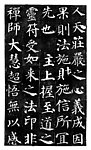 人天莊嚴之心義成因
果則法施財施信所宜
先也主上握至道之
靈符受如來之法印非
禪師大慧超悟無以感